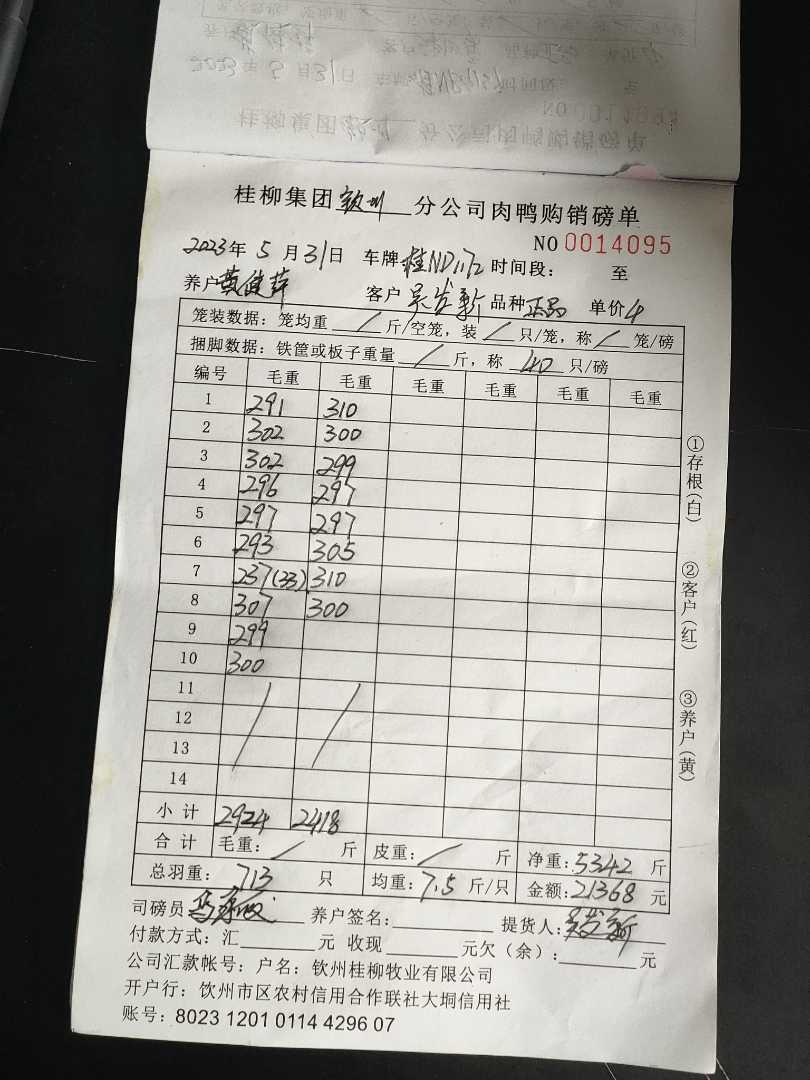 桂柳集团 钦州 分公司肉鸭购销磅单
NO 0014095
2023年 5 月 31日 车牌 桂ND1172 时间段: 至
养户 黄健萍 客户 吴发新 品种 正品 单价 4
笼装数据: 笼均重 / 斤/空笼, 装 / 只/笼, 称 / 笼/磅
捆脚数据: 铁筐或板子重量 / 斤, 称 40 只/磅
编号 毛重 毛重 毛重 毛重 毛重 毛重
1 291 310
2 302 300
3 302 299
4 296 297
5 297 297
6 293 305
7 237(33) 310
8 307 300
9 299
10 300
11
12
13
14
小 计 2924 2418
合 计 毛重: / 斤 皮重: / 斤 净重: 5342 斤
总羽重: 713 只 均重: 7.5 斤/只 金额: 21368 元
司磅员 养户签名: 提货人: 吴发新
付款方式: 汇 元 收现 元欠(余): 元
公司汇款帐号: 户名: 钦州桂柳牧业有限公司
开户行: 饮州市区农村信用合作联社大垌信用社
账号: 8023 1201 0114 4296 07
①存根(白)
②客户(红)
③养户(黄)